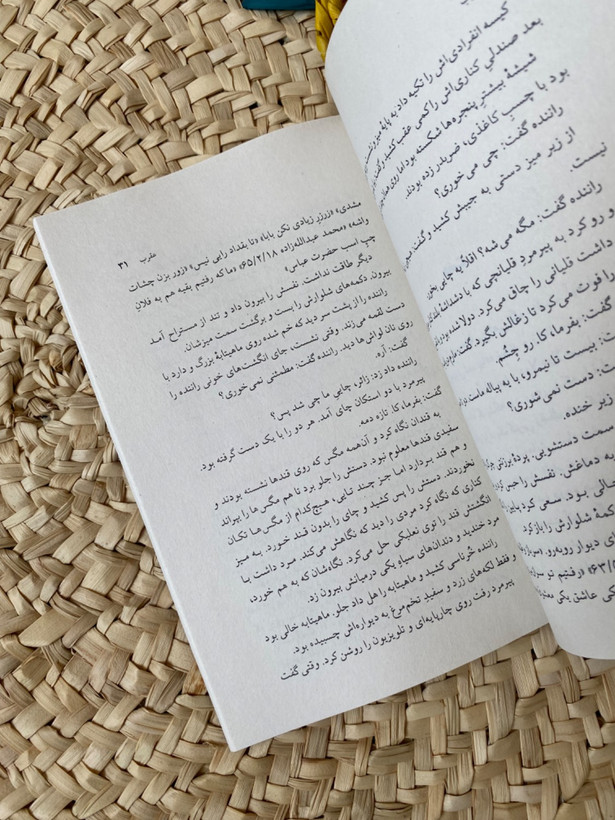 کیسه انفرادی‌اش را تکیه داد به پایه میز
بعد صندلی کناری‌اش را کمی عقب کشید
شیشهٔ بیشتر پنجره‌ها شکسته بود اما روی
بود با چسب کاغذی، ضربدر زده بودند.
راننده گفت: چی می‌خوری؟
از زیر میز دستی به جیبش کشید و گفت:
نیست.
راننده گفت: مگه می‌شه؟ اقلاً یه چایی بخور
رو کرد به پیرمرد قلیانچی که با دشداشهٔ
داشت قلیانی را چاق می‌کرد. دولا شده بود
را فوت می‌کرد تا زغالش بگیرد گفت:
گفت: بفرما، کا. رو چشم.
: بیست تا نیمرو، با یه پیاله ماست
: دست نمی‌شوری؟
زیر خنده.
سمت دستشویی. پردهٔ برزنتی
به دماغش. نفسش را حبس
خالی بود. سعی کرد
شلوارش را باز کرد
دیوار روبه‌رو.
«رفتیم تو
عاشق یکی
عقرب ۳۱
مشدی» «زرزر زیادی نکن بابا» «تا بغداد راهی نیس» «زور بزن چشات
واشه» «محمد عبدالله‌زاده ۶۵/۲/۱۸» «ما که رفتیم بقیه هم به فلان
چپ اسب حضرت عباس»
دیگر طاقت نداشت. نفسش را بیرون داد و تند از مستراح آمد
بیرون. دکمه‌های شلوارش را بست و برگشت سمت میزشان.
راننده را از پشت سر دید که خم شده روی ماهیتابهٔ بزرگ و دارد با
دست لقمه می‌زند. وقتی نشست، جای انگشت‌های خونی راننده را
روی نان تُرانش‌ها دید. راننده گفت: مطمئنی نمی‌خوری؟
گفت: آره.
راننده داد زد: زائر، چایی ما چی شد پس؟
پیرمرد با دو استکان چای آمد. هر دو را با یک دست گرفته بود.
گفت: بفرما، کا. تازه دمه.
به قندان نگاه کرد و آن‌همه مگس که روی قندها نشسته بودند و
سفیدی قندها معلوم نبود. دستش را جلو برد تا هم مگس‌ها را بپراند
و هم قند بردارد اما جز چند تایی، هیچ‌کدام از مگس‌ها تکان
نخوردند. دستش را پس کشید و چای را بدون قند خورد. به میز
کناری که نگاه کرد مردی را دید که نگاهش می‌کند. مرد داشت با
انگشتش قند را توی نعلبکی حل می‌کرد. نگاه‌شان که به هم خورد،
مرد خندید و دندان‌های سیاهِ یکی درمیانش بیرون زد.
راننده خُرناسی کشید و ماهیتابه را هل داد جلو. ماهیتابه خالی بود
و فقط لکه‌های زرد و سفید تخم‌مرغ به دیواره‌اش چسبیده بود.
پیرمرد رفت روی چارپایه‌ای و تلویزیون را روشن کرد. وقتی گفت